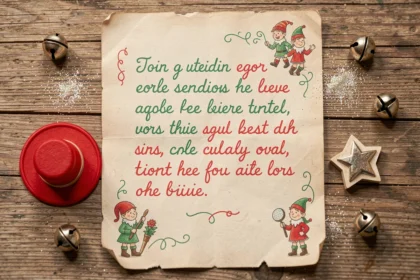 Join g uteidin egor
eorle sendioıs he lieve
agobe fee leiere tıntel,
vors thuie agul best dıh
sins, cnle culaly oval,
tiont hee fou aite lors
ohe biiuie.